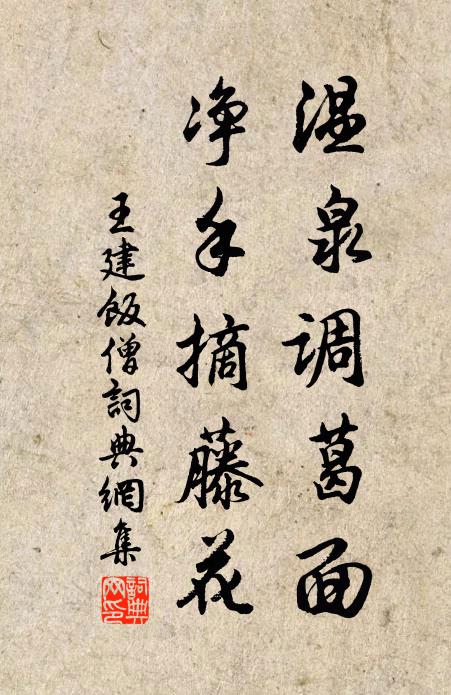 温泉调葛面
净手摘藤花
王建飯僧詞典網集
詞典
网印